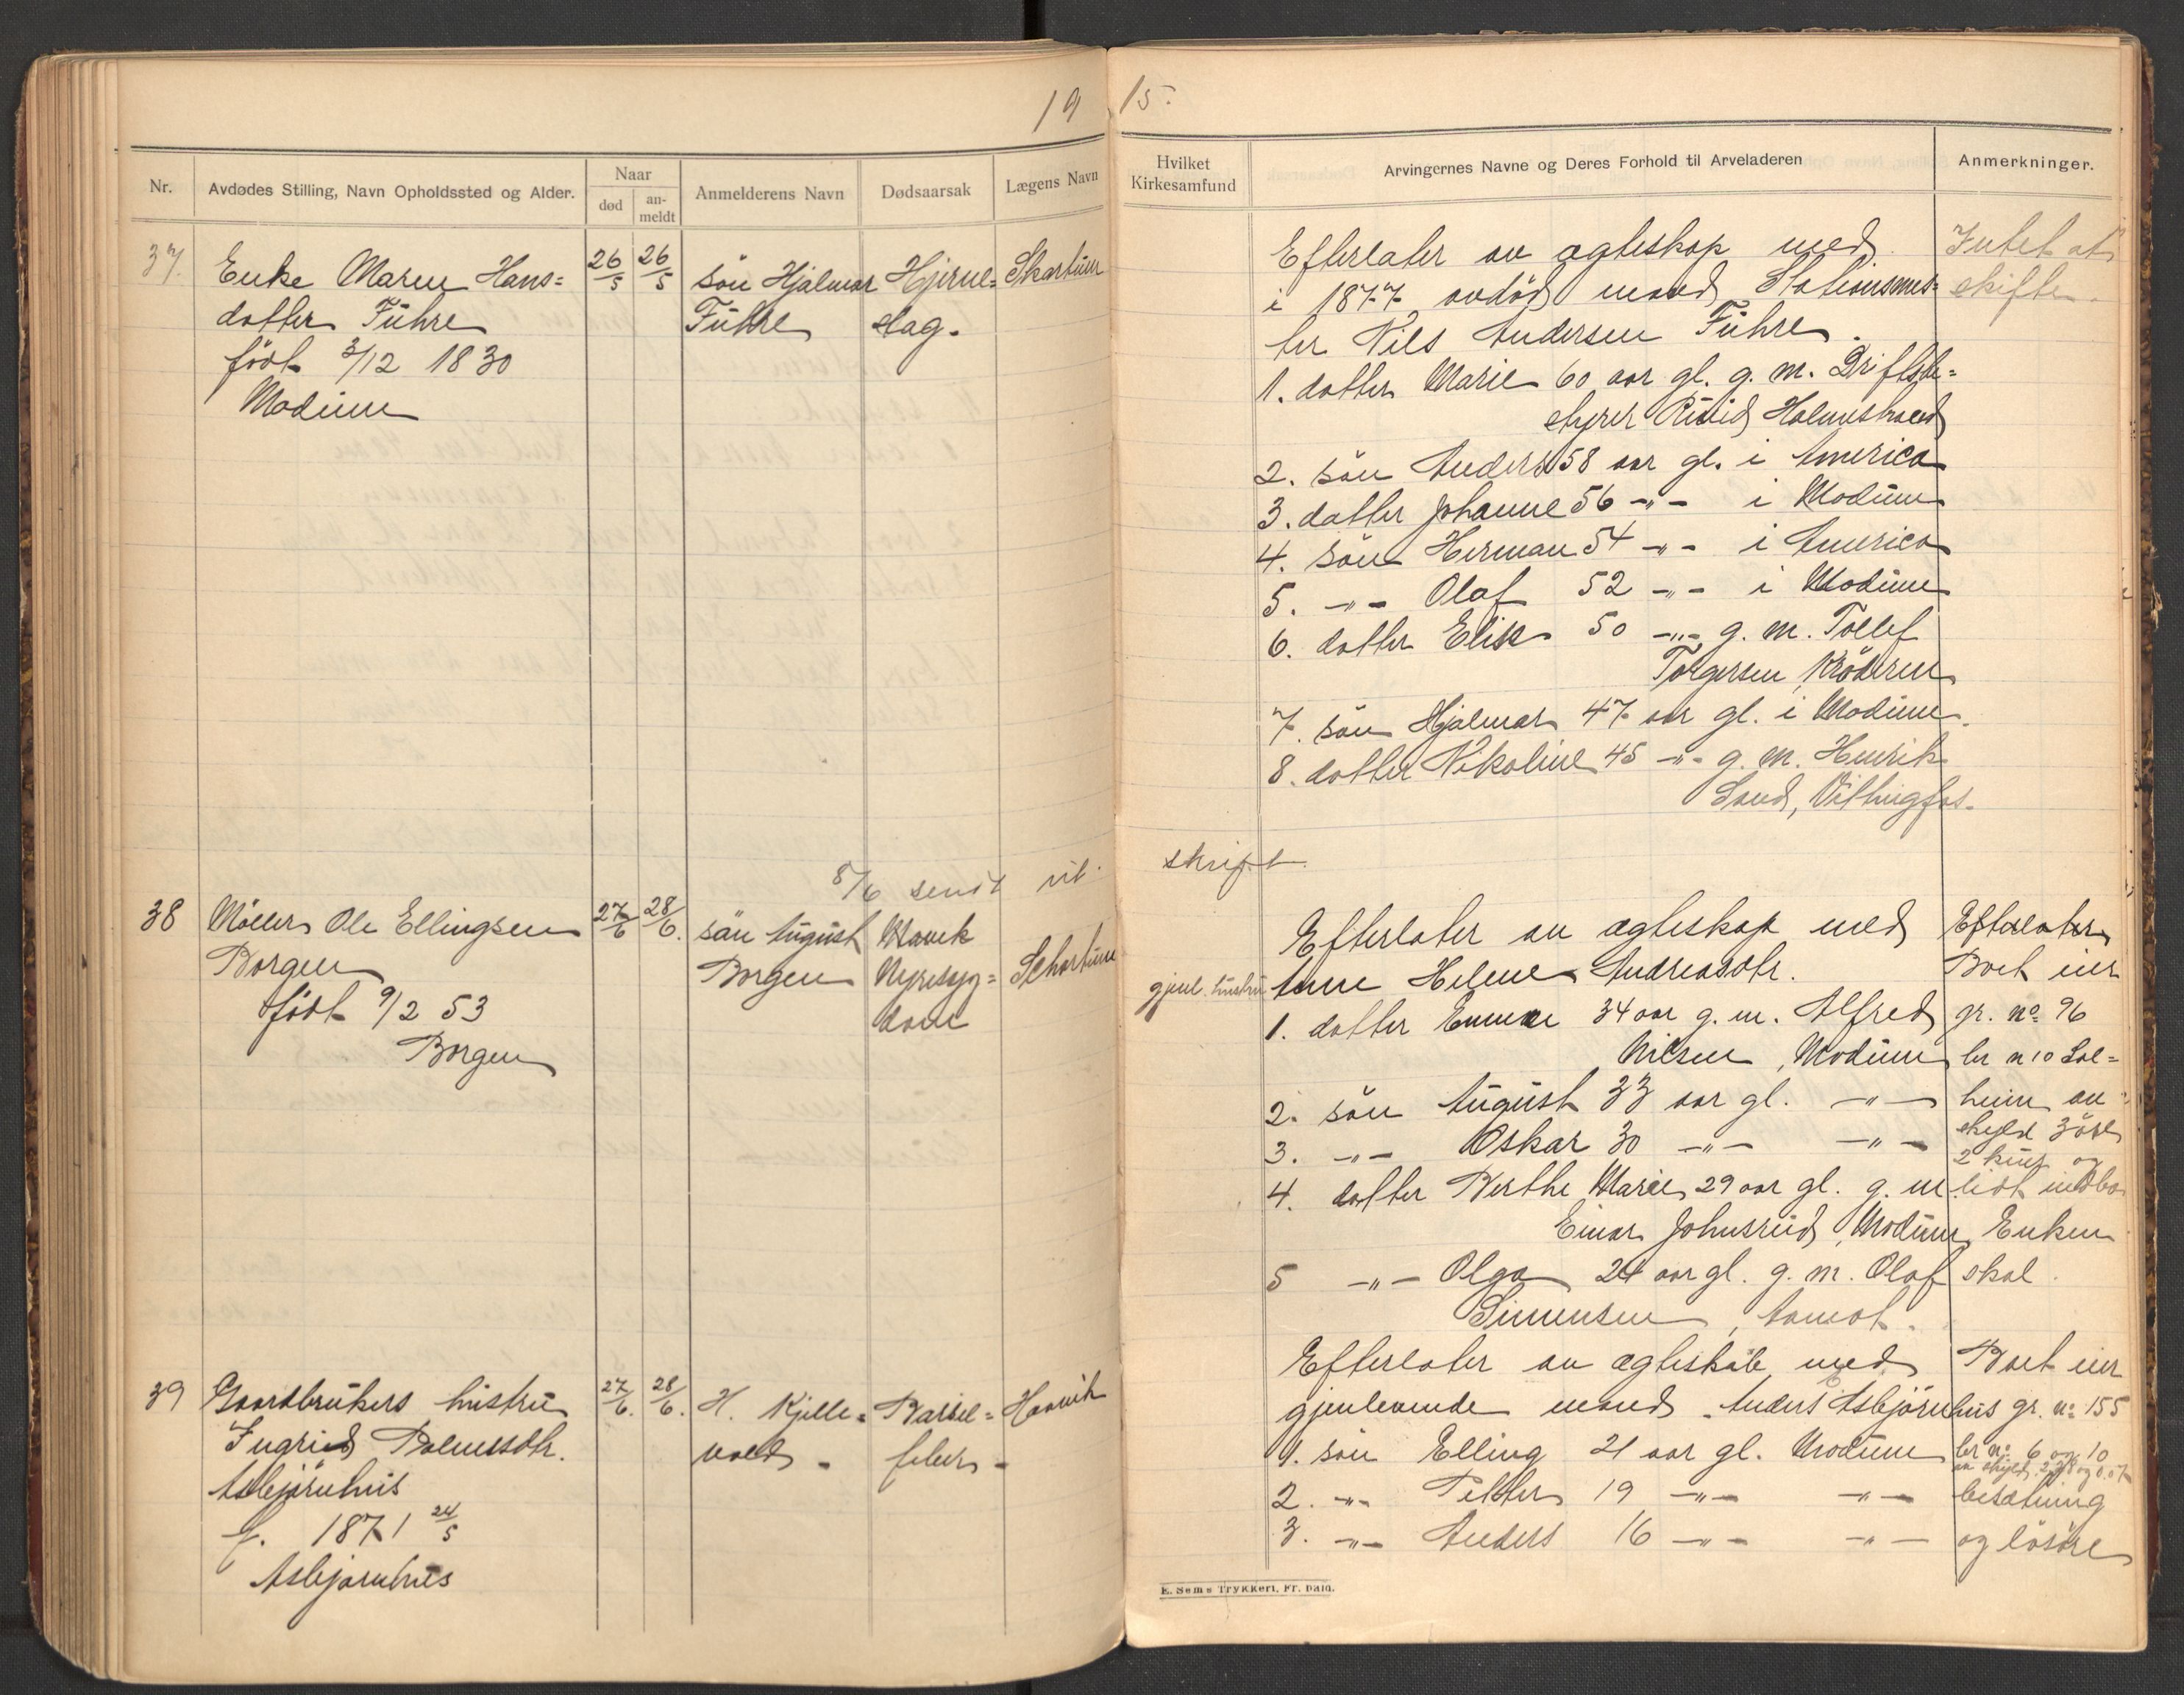 19
15.
Nr.
Avdødes Stilling, Navn Opholdssted og Alder.
Naar
død
an-
meldt
Anmelderens Navn
Dødsaarsak
Lægens Navn
Hvilket
Kirkesamfund
Arvingernes Navne og Deres Forhold til Arveladeren
Anmerkninger.
37.
Enke Maren Hans=
datter Fuhre
født 3/12 1830
Modum
26/5
26/5
søn Hjalmar
Fuhre
Hjerne=
slag.
Skartum
Efterlater av ægteskap med
i 1877 avdød mand Stationsmes=
ter Nils Andersen Fuhre.
1. datter Marie 60 aar gl. g. m. Driftsbe=
styrer Ruud Holmestrand
2. søn Anders 58 aar gl. i America
3. datter Johanne 56 -"- i Modum
4. søn Herman 54 -"- i America
5. -"- Olaf 52 -"- i Modum
6. datter Elise 50 -"- g. m. Tollef
Torgersen, Krøderen
7. søn Hjalmar 47 aar gl. i Modum.
8. datter Nikoline 45 -"- g. m. Henrik
Sand, Vittingfos.
Intet at
skifte.
8/6 sendt ut.
skrift.
38
Møller Ole Ellingsen
Borgen
født 9/2 53
Borgen
27/6
28/6.
søn August
Borgen
Nyresyg=
dom
Schartum
gjenl. hustru
Efterlater av ægteskap med
Anne Helene Andreasdtr.
1. datter Emma 34 aar g. m. Alfred
Nilsen, Modum
2. søn August 33 aar gl. -"-
3. -"- Oskar 30 -"- -"-
4. datter Berthe Marie 29 aar gl. g. m
Einar Johnsrud, Modum
5 -"- Olga 24 aar gl. g. m. Olaf
Simensen, Aamot.
Efterlater
Boet eier
gr. no 96
br n 10 Sol=
heim av
skyld 3 øre
2 kuer og
lidt indbo
Enken
skal.
39
Gaardbrukers hustru
Ingrid Palmesdtr.
Asbjørnhus
f. 1871 24/5
Asbjørnhus
27/6.
28/6.
H. Kjelle=
vold.
Barsel=
feber.
Haavik
Efterlater av ægteskab med
gjenlevende mand Anders Asbjørnhus
1. søn Elling 21 aar gl. Modum
2. -"- Petter 19 -"- -"-
3. -"- Anders 16 -"- -"-
Boet eier
gr. no 155
br no 6 og 10
besætning
og løsøre
E. Sems Trykkeri, Fr. hald.